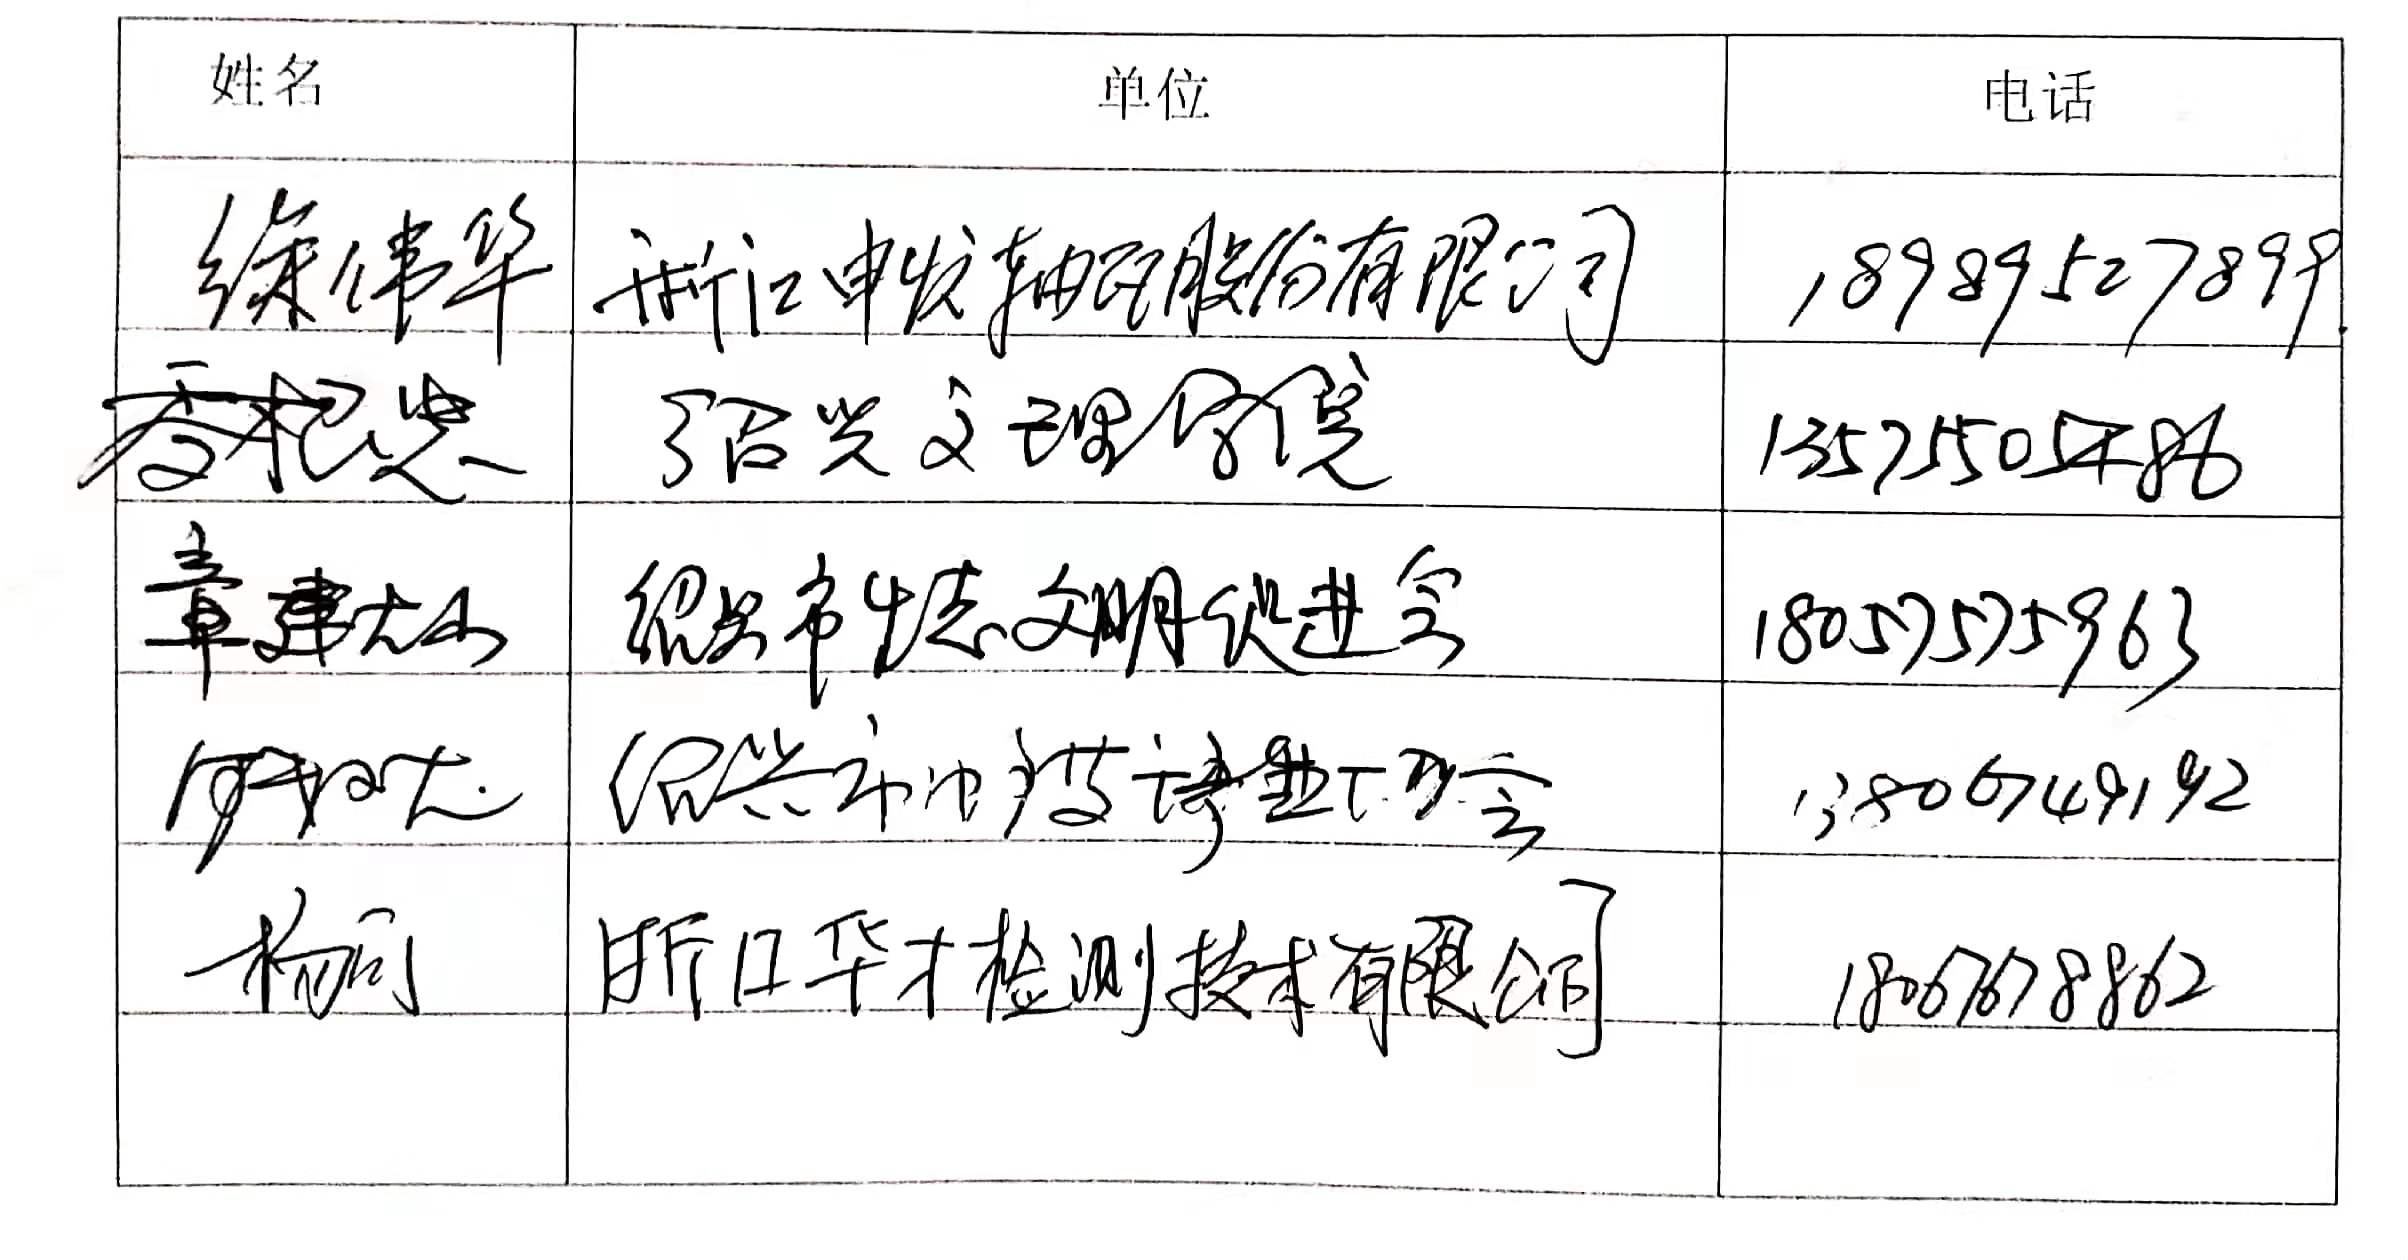 姓名 单位 电话
徐伟华 浙江申发轴瓦股份有限公司 18989527899
绍兴文理学院 13575505486
章建 绍兴市生态文明促进会 18057575963
绍兴市 会 13806749192
杨 浙江华才检测技术有限公司 18067678862